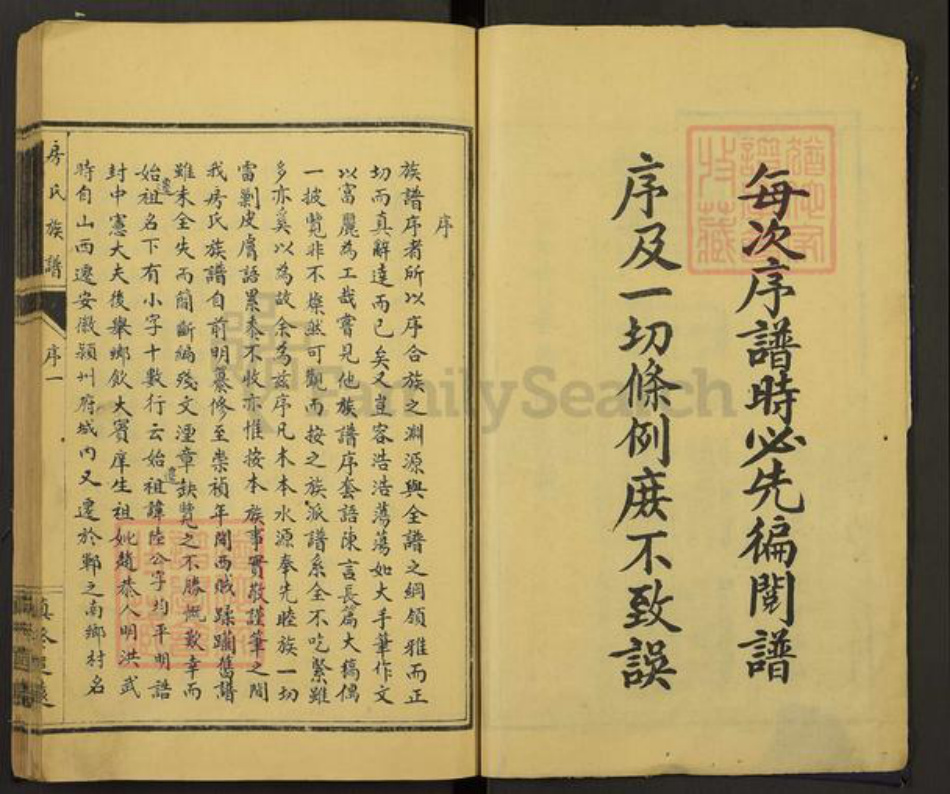 每次序譜時必先徧閱譜
序及一切條例庶不致誤
序
族譜序者所以序合族之淵源與全譜之綱領雅而正
切而真辭達而已矣又豈容浩浩蕩蕩如大手筆作文
以富麗為工哉嘗見他族譜序套語陳言長篇大稿偶
一披覽非不燦然可觀而按之族派譜系全不吃緊雖
多亦奚以為故余為兹序凡木本水源奉先睦族一切
雷剿皮膚語累黍不收亦惟按本族事實敬謹筆之間
我房氏族譜自前明纂修至崇禎年間西賊蹂躪舊譜
雖未全失而簡斷編殘文湮章缺覽之不勝慨歎幸而
始祖名下有小字十數行云始祖諱陸公字均平明誥
封中憲大夫後舉鄉飲大賓庠生祖妣趙恭人明洪武
時自山西遷安徽潁州府城內又遷於鄴之南鄉村名
房氏族譜
序一
FamilySearch